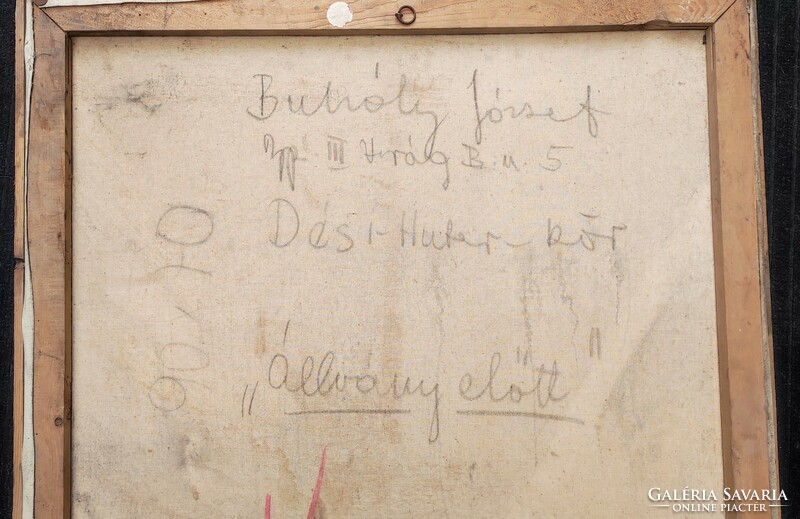 Buhály József
Bp III Virág B. u 5
Dési-Huber-kör
90 x 70
„Állvány előtt"
GALÉRIA SAVARIA
ONLINE PIACTÉR